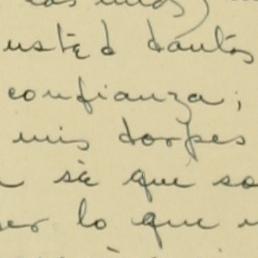 usted tantas
confianza;
mis torpes
sé que so
lo que